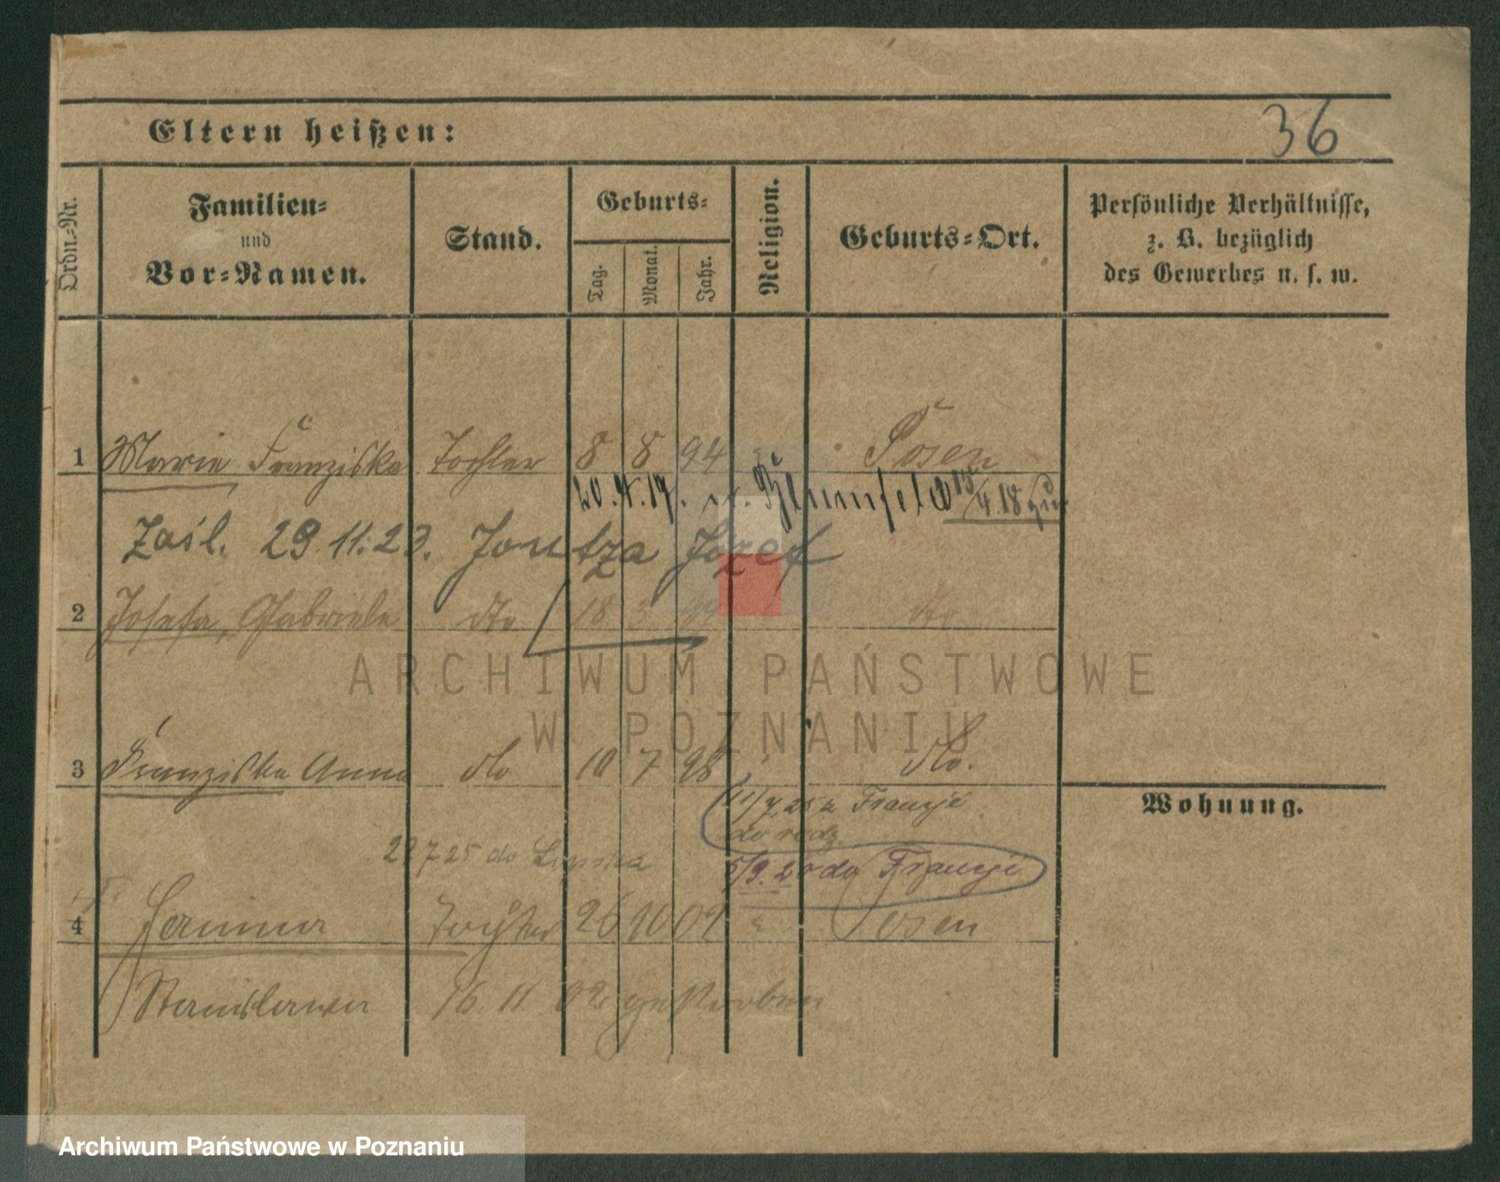 36
Eltern heißen:
Ordn.-Nr.
Familien-
und
Vor-Namen.
Stand.
Geburts-
Tag.
Monat.
Jahr.
Religion.
Geburts-Ort.
Persönliche Verhältnisse,
z. B. bezüglich
des Gewerbes u. s. w.
1 Marie Franziska Tochter 8 8 94 Posen
20. 4. 17. n. Blumfeld 4.18
Zaśl. 29.11.23. Jontza Józef
2 Josefa, Gabriele dto 18 3 dto
ARCHIWUM PAŃSTWOWE
W POZNANIU
3 Franziska Anna dto 10 7 98 dto.
Wohnung.
z Francji
do rodz.
22 7 25 do
5/9. 2 do Francji
4 Janina Tochter 26 10 01 Posen
Stanislawa 16. 11 02 gestorben
Archiwum Państwowe w Poznaniu